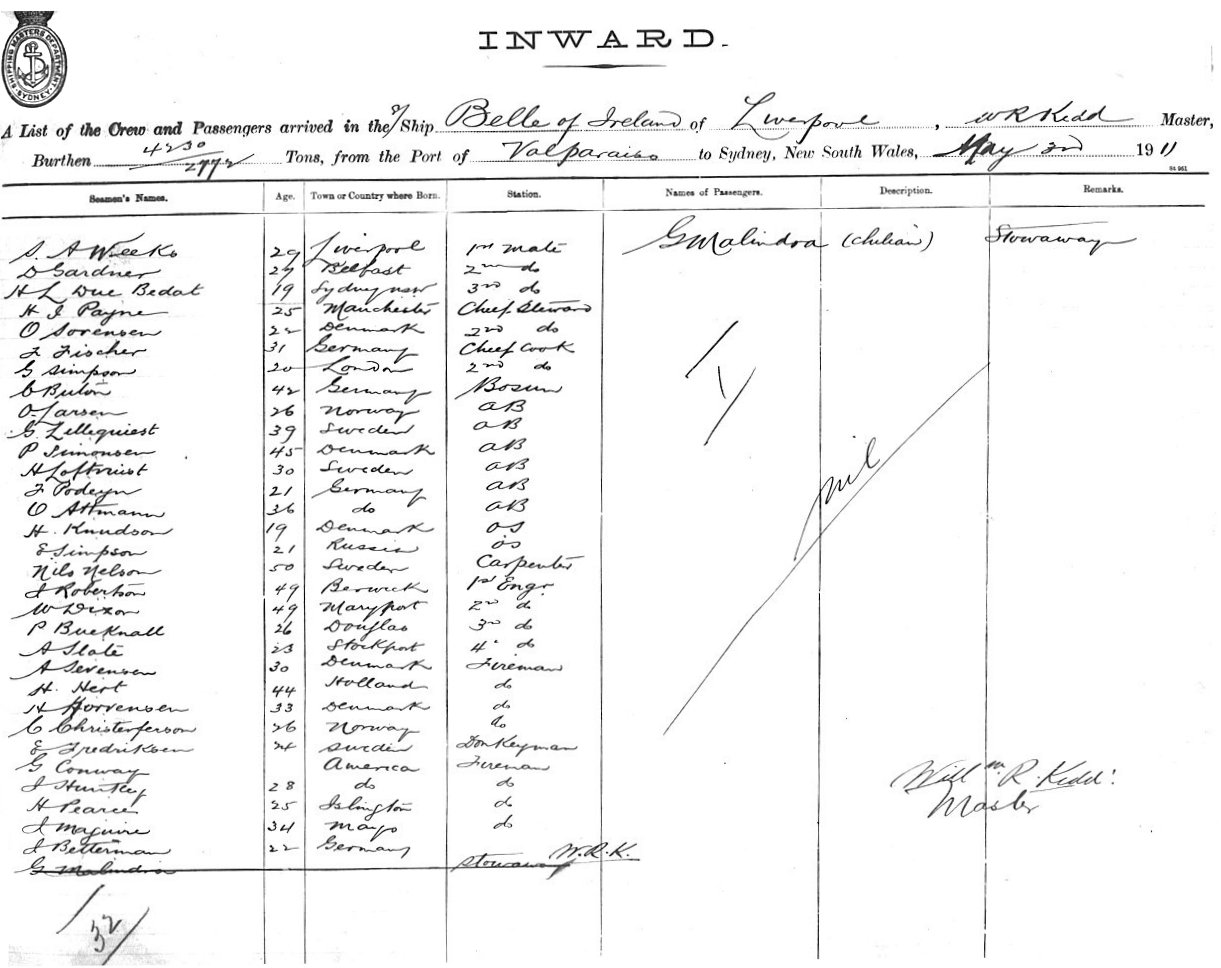 SHIPPING MASTERS DEPARTMENT SYDNEY
INWARD.
A List of the Crew and Passengers arrived in the S/ Ship Belle of Ireland of Liverpool, W R Kidd Master,
Burthen 4230/2772 Tons, from the Port of Valparaiso to Sydney, New South Wales, May 3rd 1911
Seamen's Names. Age. Town or Country where Born. Station. Names of Passengers. Description. Remarks.
S. A Weeks 29 Liverpool 1st mate G Malindra (chilian) Stowaway
D Gardner 27 Belfast 2nd do
H L Due Bedat 19 Sydney nsw 3rd do
H J Payne 25 Manchester Chief Steward
O Sorensen 22 Denmark 2nd do
F Fischer 31 Germany Chief Cook
G Simpson 20 London 2nd do
C Buton 42 Germany Bosun
O. Larsen 26 Norway AB
G Lillequiest 39 Sweden AB
P Simonsen 45 Denmark AB
H Loftquist 30 Sweden AB
F Podeyn 21 Germany AB
O Attmann 36 do AB
H. Knudson 19 Denmark OS
E Simpson 21 Russia OS
Nils Nelson 50 Sweden Carpenter
J Robertson 49 Berwick 1st Engr.
W Dixon 49 Maryport 2nd do
P Bucknall 26 Douglas 3rd do
A Slate 23 Stockport 4" do
A Sevensen 30 Denmark Fireman
H. Hert 44 Holland do
H Horvensen 33 Denmark do
C Christerferson 26 Norway do
E Fredriksen 24 Sweden Donkeyman
G Conway America Fireman
J Huntley 28 do do
H Pearce 25 Islington do
J Maguire 34 Mayo do
J Betterman 22 Germany
G Malindra Stowaway W.R.K.
1/
nil
Willm R. Kidd.
Master
32/